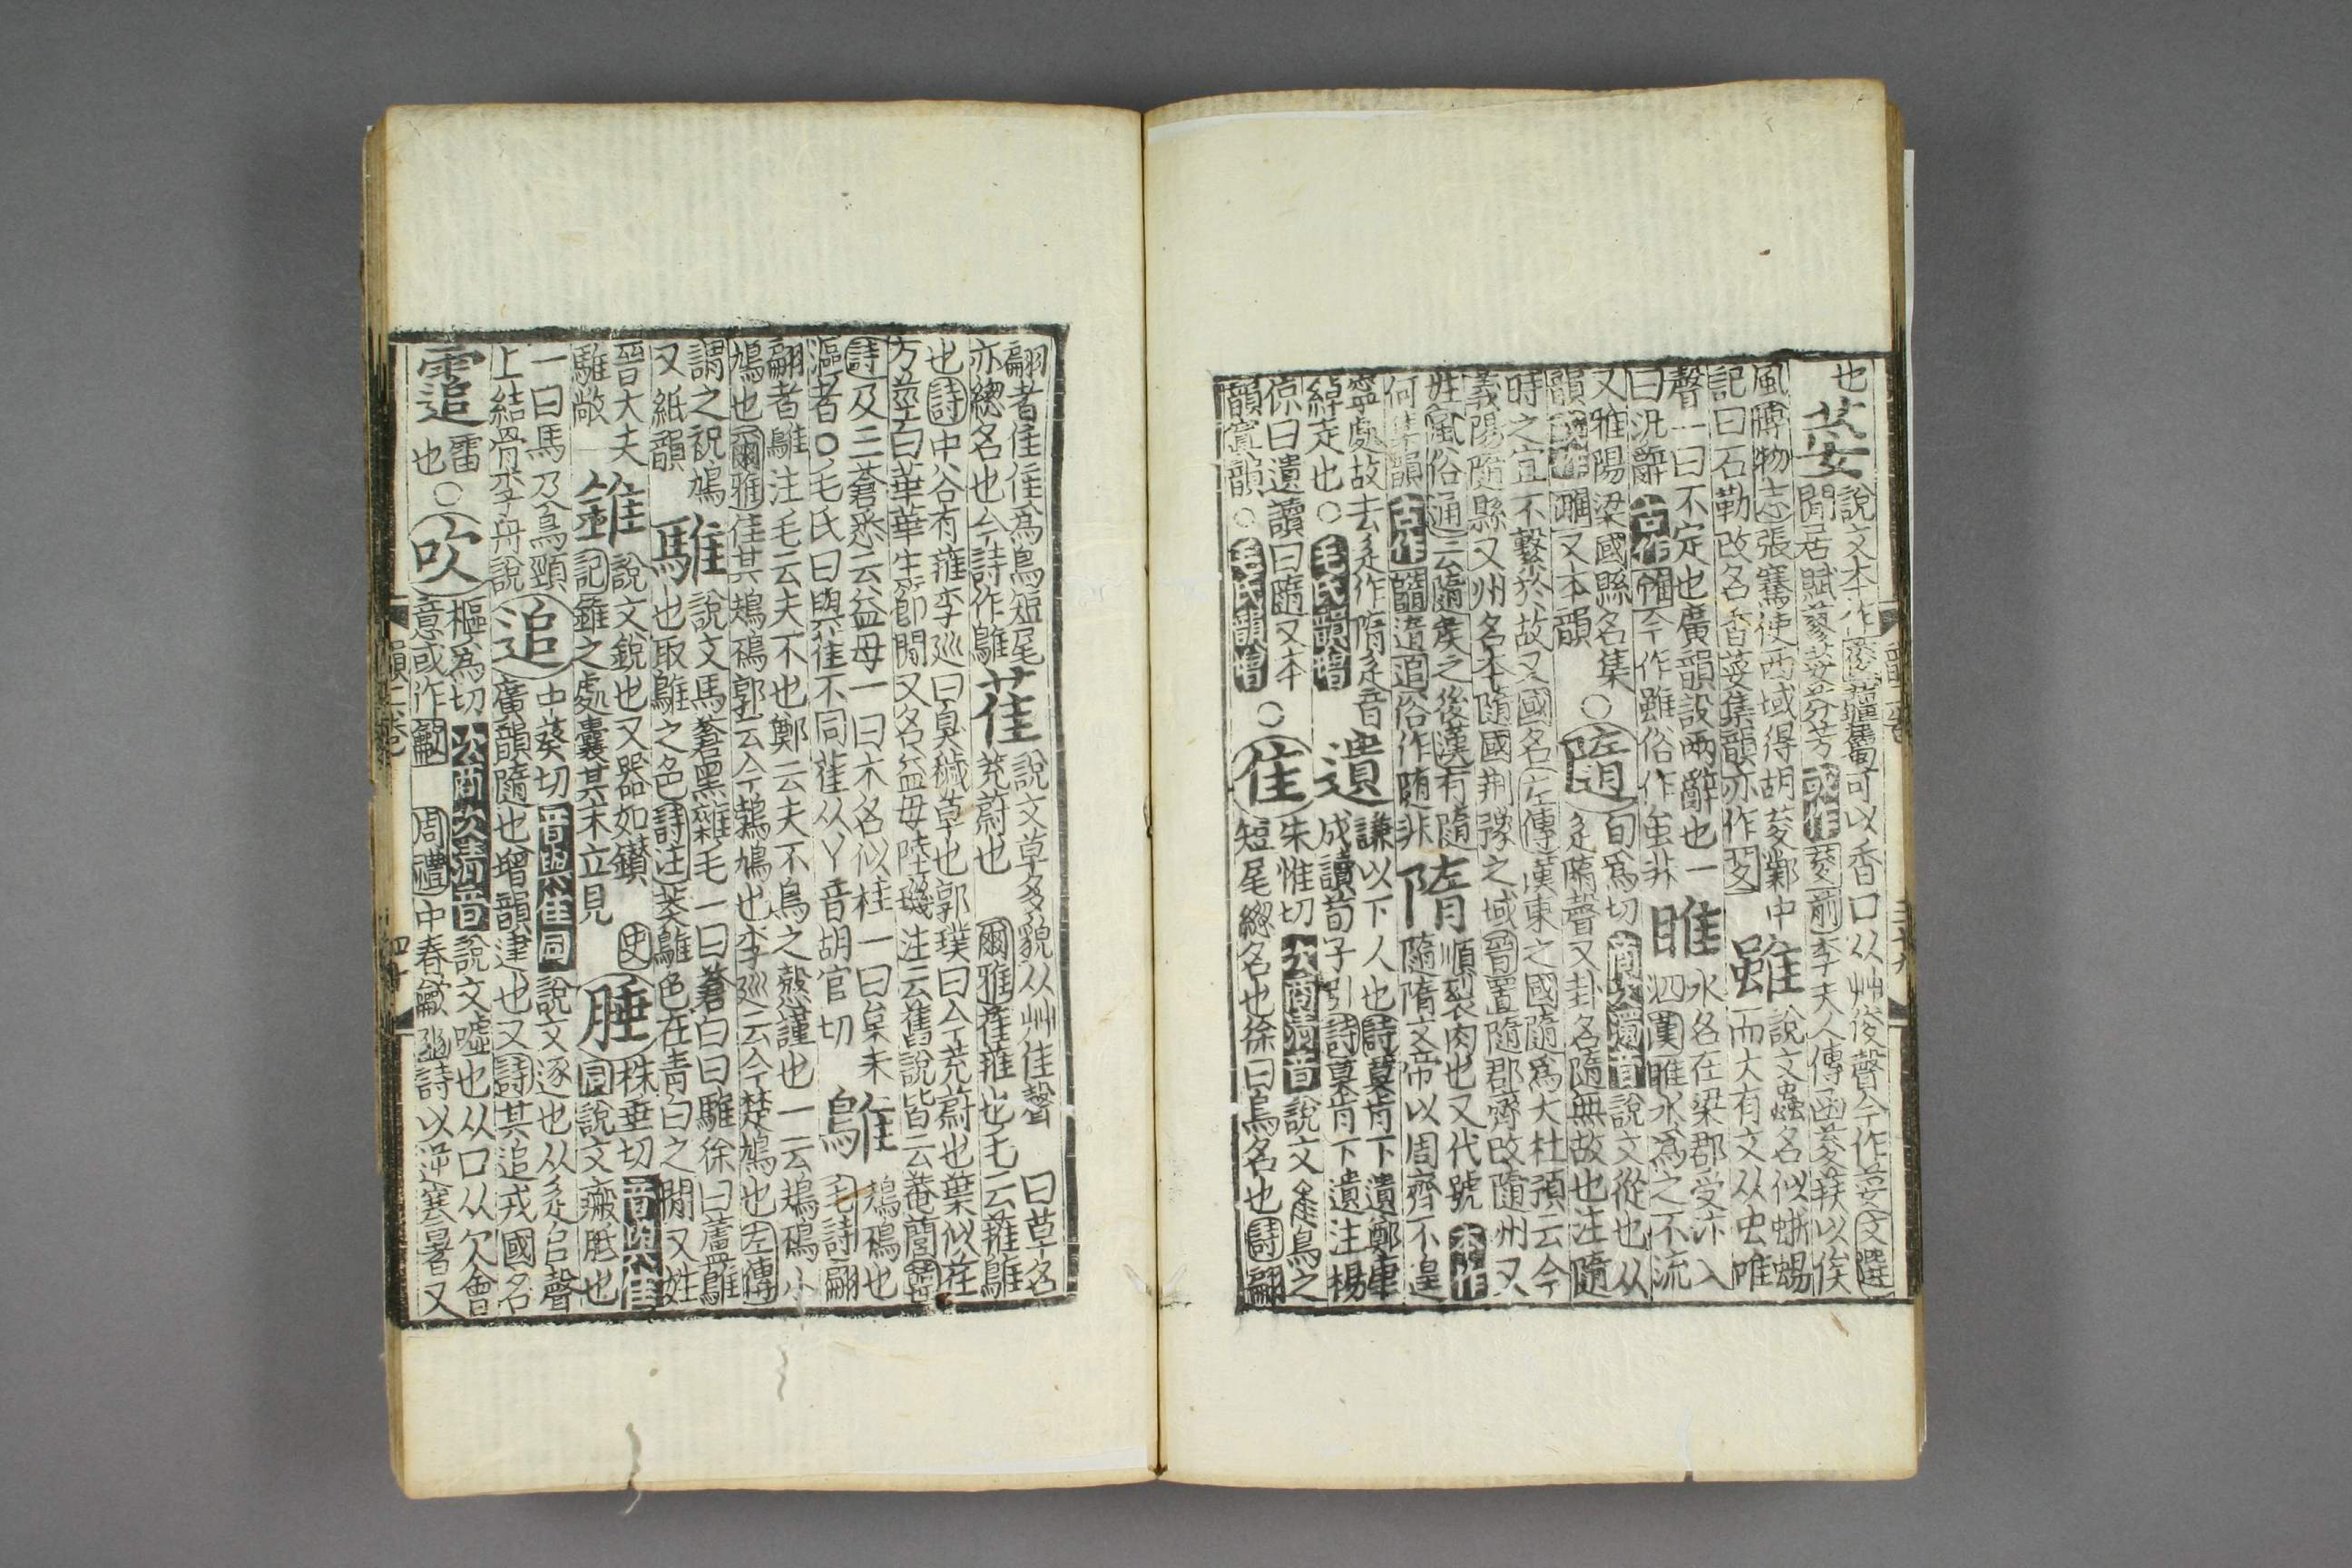 也荽說文本作葰薑屬可以香口从艸俊聲今作荽文選
閒居賦蓼荽芬芳或作荾前李夫人傳函荾荴以俟
風博物志張騫使西域得胡荾鄴中
記曰石勒改名香荽集韻亦作荾
雖說文蟲名似蜥蜴
而大有文从虫唯
聲一曰不定也廣韻設兩辭也一
曰況辭古作今作雖俗作虽非
睢水名在梁郡受汴入
泗漢睢水為之不流
又雅陽梁國縣名集
韻或作濉又本韻
○隨旬爲切商次濁音說文從也从
辵隋聲又卦名隨無故也注隨
時之宜不繫於故又國名左傳漢東之國隨為大杜預云今
義陽隨縣又州名本隨國荆豫之域晉置隨郡齊改隨州又
姓風俗通云隨矦之後漢有隨
何集韻古作遀追俗作随非
隋順裂肉也又代號本作
隨隋文帝以周齊不遑
寧處故去辵作隋辵音
綽走也○毛氏韻增
遺謙以下人也詩莫肯下遺鄭康
成讀荀子引詩莫肯下遺注楊
倞曰遺讀曰隨又本
韻寘韻○毛氏韻增
○隹朱惟切次商清音說文隹鳥之
短尾總名也徐曰鳥名也詩翩
韻二卷 三十九
翩者隹隹為鳥短尾
亦總名也今詩作鵻
萑說文草多貌从艸隹聲 曰草名
茺蔚也 爾雅萑蓷也毛云蓷鵻
也詩中谷有蓷李廵曰臭穢草也郭璞曰今茺蔚也葉似荏
方莖白華華生節間又名益母陸璣注云舊說皆云菴䕡韓
詩及三蒼悉云益母一曰木名似桂一曰枲未
漚者○毛氏曰與萑不同萑从丫音胡官切
鵻鳺鴀也
毛詩翩
翩者鵻注毛云夫不也鄭云夫不鳥之慤謹也一云鳺鴀小
鳩也爾雅隹其鳺鴀郭云今鵓鳩也李廵云今楚鳩也左傳
謂之祝鳩
又紙韻
騅說文馬蒼黑雜毛一曰蒼白曰騅徐曰蘆鵻
也取鵻之色詩注菼鵻色在青白之間又姓
晉大夫
騅歂
錐說文銳也又器如鑚史
記錐之處囊其末立見
腄株垂切音與隹
同說文瘢胝也
一曰馬及鳥頸
上結骨李舟說
追中葵切音與隹同說文逐也从辵𠂤聲
廣韻隨也增韻逮也又詩其追戎國名
䨨雷
也○
吹樞為切次商次清音說文噓也从口从欠會
意或作龡 周禮中春龡豳詩以逆寒暑又
韻二卷 四十